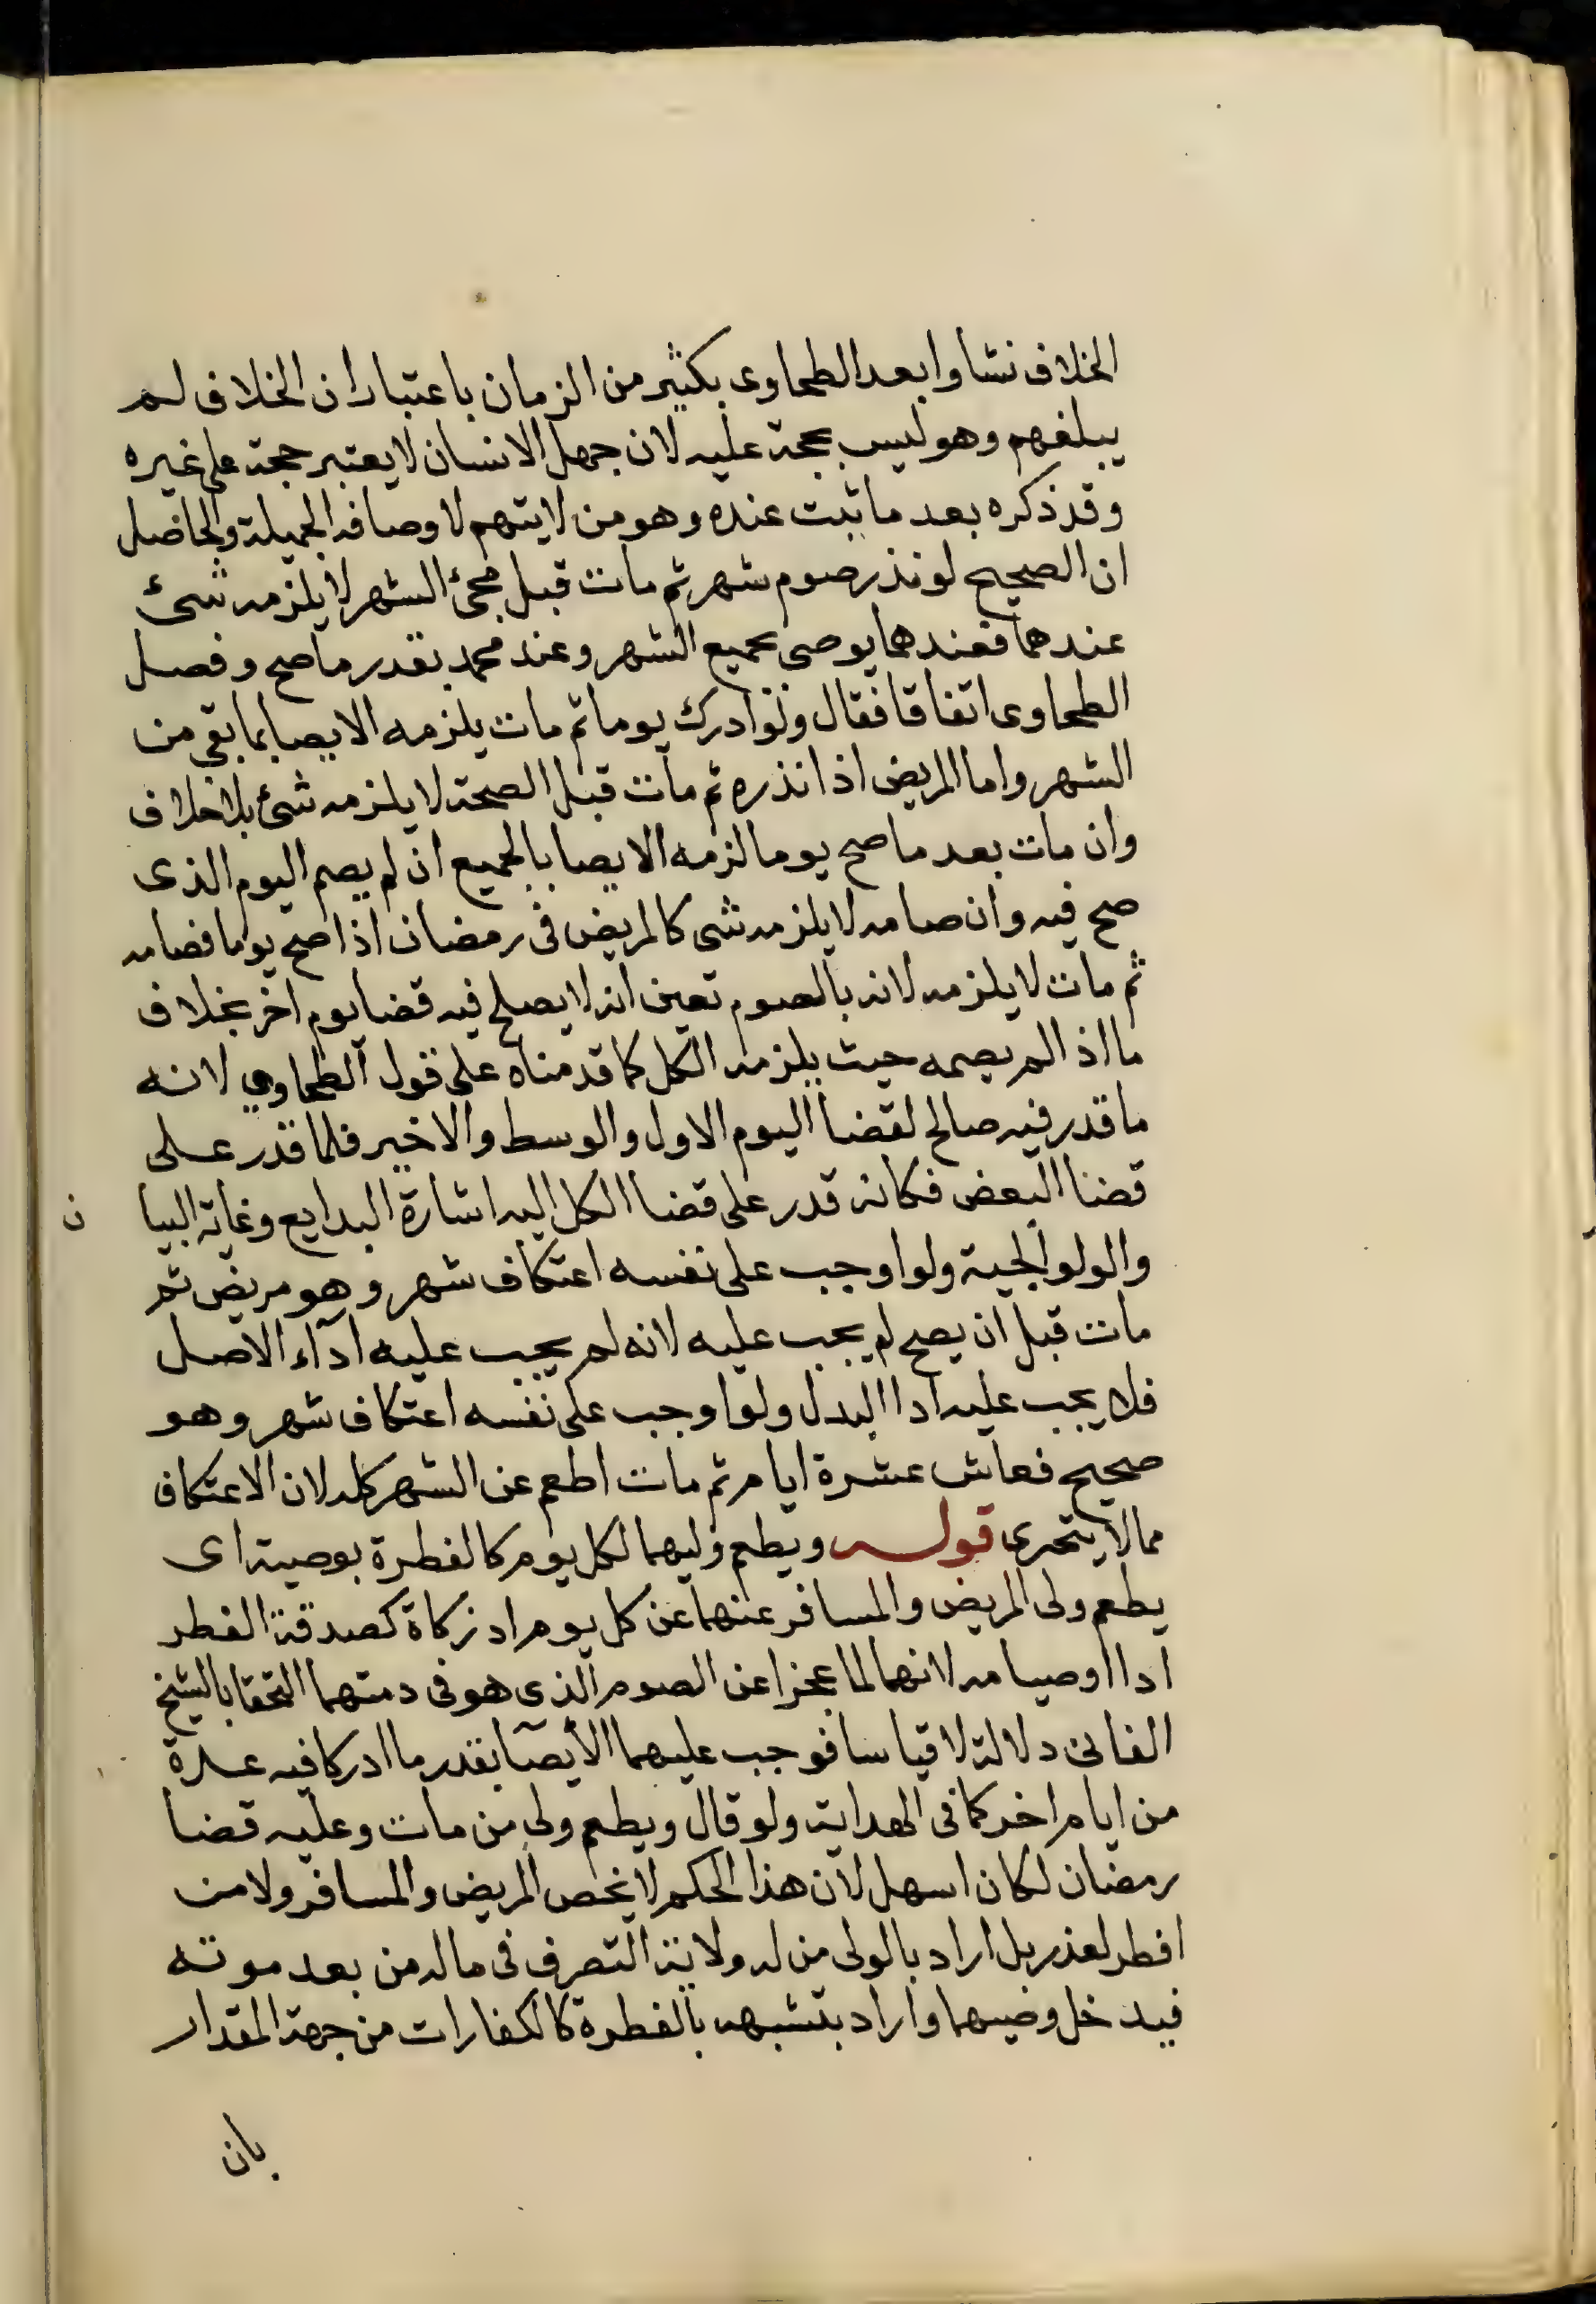 الخلاف نشاوا بعد الطحاوى بكثير من الزمان باعتبار ان الخلاف لم
يبلغهم وهو ليس بحجة عليه لان جهل الانسان لا يعتبر حجة على غيره
وقد ذكره بعد ما ثبت عنده وهو من لا يتهم لاوصافه الجميلة والحاصل
ان الصحيح لو نذر صوم شهر ثم مات قبل مجئ الشهر لا يلزمه شئ
عندهما فعندهما يوصى بجميع الشهر وعند محمد بقدر ما صح وفصل
الطحاوى اتفاقا فقال ولو ادرك يوما ثم مات يلزمه الايصا بما بقى من
الشهر واما المريض اذا نذره ثم مات قبل الصحة لا يلزمه شئ بلا خلاف
وان مات بعد ما صح يوما لزمه الايصا بالجميع ان لم يصم اليوم الذى
صح فيه وان صامه لا يلزمه شى كالمريض فى رمضان اذا صح يوما فصامه
ثم مات لا يلزمه لانه بالصوم تعين انه لا يصلح فيه قضا يوم اخر بخلاف
ما اذا لم يصمه حيث يلزمه الكل كما قدمناه على قول الطحاوي لانه
ما قدر فيه صالح لقضا اليوم الاول والوسط والاخير فلما قدر على
قضا البعض فكانه قدر على قضا الكل اليه اشارة البدايع وغاية البيا ن
والولوالجية ولو اوجب على نفسه اعتكاف شهر وهو مريض ثم
مات قبل ان يصح لم يجب عليه لانه لم يجب عليه اداء الاصل
فلا يجب عليه ادا البدل ولو اوجب على نفسه اعتكاف شهر وهو
صحيح فعاش عشرة ايام ثم مات اطعم عن الشهر كله لان الاعتكاف
مما لا يتحرى قوله ويطعم وليهما لكل يوم كالفطرة بوصية اى
يطعم ولى المريض والمسافر عنهما عن كل يوم اد زكاة كصدقة الفطر
ادا اوصيا مه لانهما لما عجزا عن الصوم الذى هو فى دمتهما التحقا بالشيخ
الفانى دلالة لا قياسا فوجب عليهما الأيصا بقدر ما ادركا فيه عدة
من ايام اخر كما فى الهداية ولو قال ويطعم ولى من مات وعليه قضا
رمضان لكان اسهل لان هذا الحكم لا يخص المريض والمسافر ولا من
افطر لعذر بل اراد بالولى من له ولاية التصرف فى ماله من بعد موته
فيدخل وصيهما واراد بتشبهه بالفطرة كالكفارات من جهة المقدار
بان